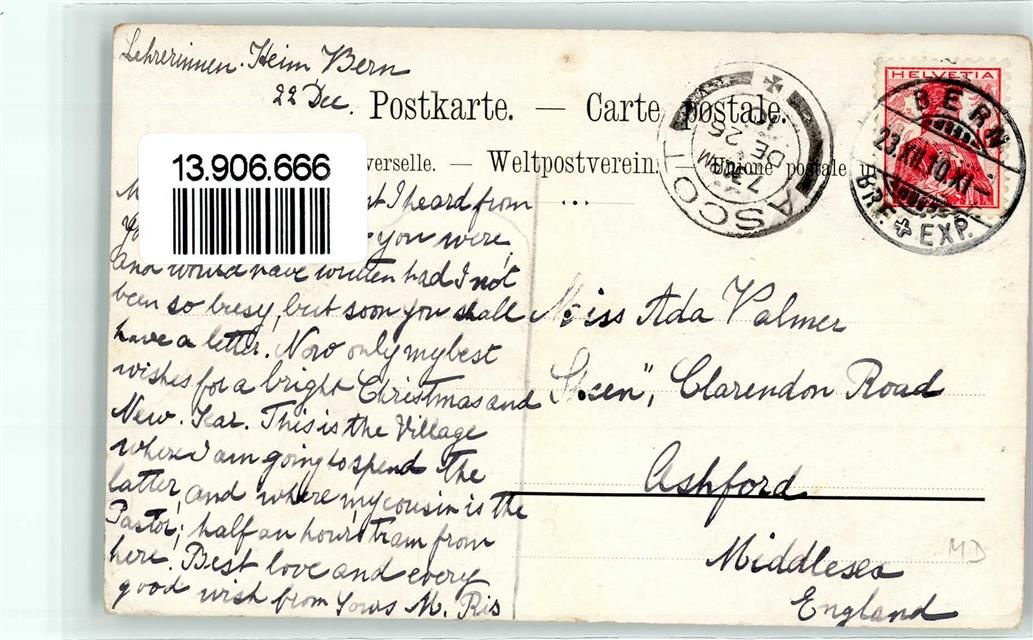 Lehrerinnen-Heim, Bern
22 Dec.
Postkarte. — Carte postale.
verselle. — Weltpostverein. Unione postale u
13.906.666
HELVETIA
BERN
23.XII.10.XI
BRF. EXP.
ASCOT
7 AM
DE 25
10
t I heard from
you were,
and would have written had I not
been so busy, but soon you shall
have a letter. Now only my best
wishes for a bright Christmas and
New Year. This is the Village
where I am going to spend the
latter, and where my cousin is the
Pastor; half an hours tram from
here. Best love and every
good wish from Yours M. Ris
Miss Ada Palmer
Clarendon Road
Ashford
Middlesex
England
MD